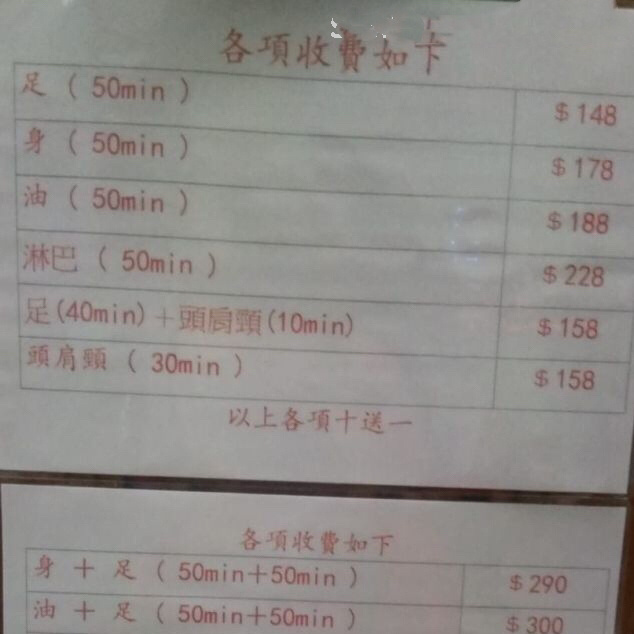 各項收費如下
足 ( 50min ) $148
身 ( 50min ) $178
油 ( 50min ) $188
淋巴 ( 50min ) $228
足(40min)＋頭肩頸(10min) $158
頭肩頸 ( 30min ) $158
以上各項十送一
各項收費如下
身 ＋ 足 ( 50min＋50min ) $290
油 ＋ 足 ( 50min＋50min ) $300